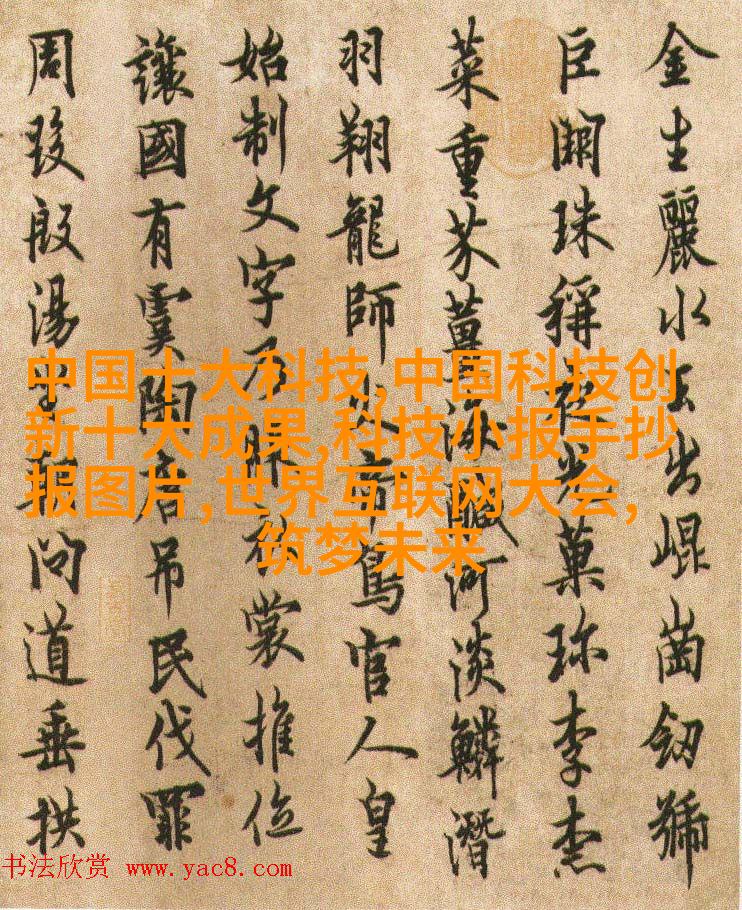 金生麗水玉出崐崗劒號
巨闕珠稱夜光菓珎李柰
菜重芥薑海醎河淡鱗潛
羽翔龍師火帝鳥官人皇
始制文字乃服衣裳推位
讓國有虞陶唐吊民伐罪
周發殷湯坐朝問道垂拱
中国十大科技,中国科技创
新十大成果,科技小报手抄
报图片,世界互联网大会,
筑梦未来
书法欣赏 www.yac8.com